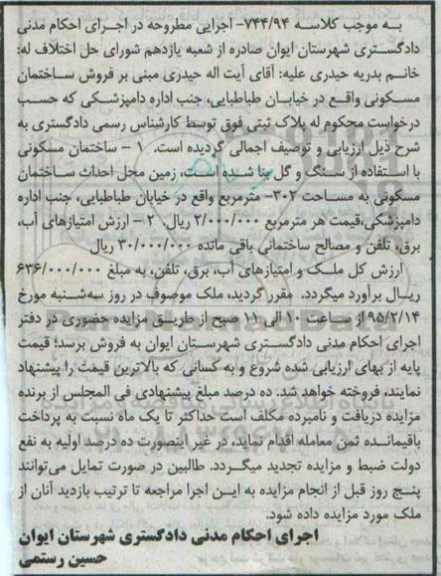 به موجب کلاسه ۷۴۴/۹۴- اجرایی مطروحه در اجرای احکام مدنی
دادگستری شهرستان ایوان صادره از شعبه یازدهم شورای حل اختلاف له:
خانم بدریه حیدری علیه: آقای آیت اله حیدری مبنی بر فروش ساختمان
مسکونی واقع در خیابان طباطبایی، جنب اداره دامپزشکی که حسب
درخواست محکوم له پلاک ثبتی فوق توسط کارشناس رسمی دادگستری به
شرح ذیل ارزیابی و توصیف اجمالی گردیده است. ۱ – ساختمان مسکونی
با استفاده از سنگ و گل بنا شده است، زمین محل احداث ساختمان
مسکونی به مساحت ۳۰۲- مترمربع واقع در خیابان طباطبایی، جنب اداره
دامپزشکی،قیمت هر مترمربع ۲/۰۰۰/۰۰۰ ریال. ۲ – ارزش امتیازهای آب،
برق، تلفن و مصالح ساختمانی باقی مانده ۳۰/۰۰۰/۰۰۰ ریال
ارزش کل ملک و امتیازهای آب، برق، تلفن، به مبلغ ۶۳۶/۰۰۰/۰۰۰
ریال برآورد میگردد. مقرر گردید، ملک موصوف در روز سه‌شنبه مورخ
۹۵/۲/۱۴ از ساعت ۱۰ الی ۱۱ صبح از طریق مزایده حضوری در دفتر
اجرای احکام مدنی دادگستری شهرستان ایوان به فروش برسد؛ قیمت
پایه از بهای ارزیابی شده شروع و به کسانی که بالاترین قیمت را پیشنهاد
نمایند، فروخته خواهد شد. ده درصد مبلغ پیشنهادی فی المجلس از برنده
مزایده دریافت و نامبرده مکلف است حداکثر تا یک ماه نسبت به پرداخت
باقیمانده ثمن معامله اقدام نماید، در غیر اینصورت ده درصد اولیه به نفع
دولت ضبط و مزایده تجدید میگردد. طالبین در صورت تمایل می‌توانند
پنج روز قبل از انجام مزایده به این اجرا مراجعه تا ترتیب بازدید آنان از
ملک مورد مزایده داده شود.
اجرای احکام مدنی دادگستری شهرستان ایوان
حسین رستمی